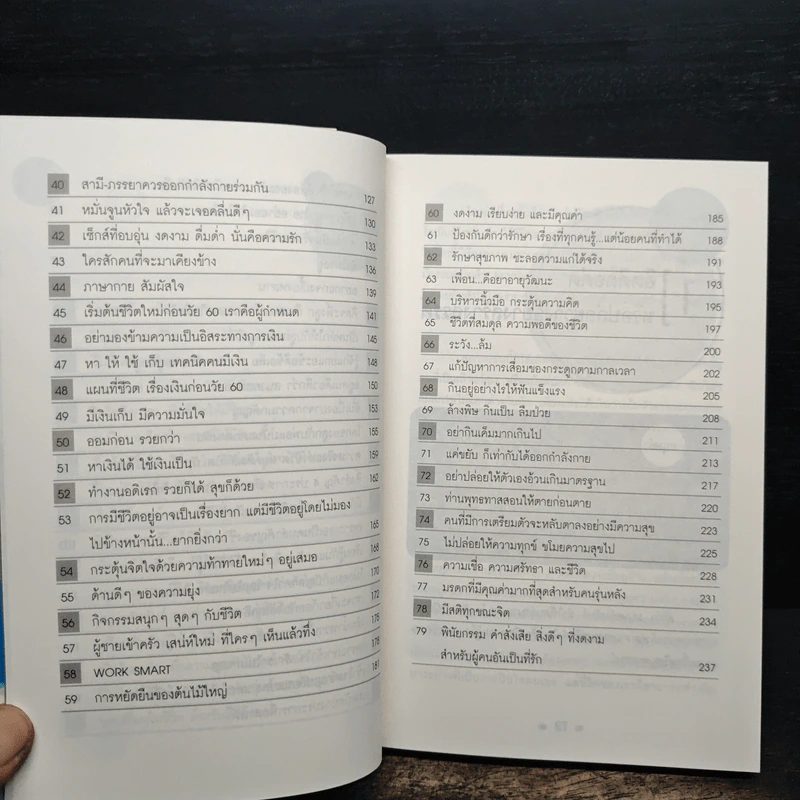 40 สามี-ภรรยาควรออกกำลังกายร่วมกัน 127
41 หมั่นจูนหัวใจ แล้วจะเจอคลื่นดีๆ 130
42 เซ็กส์ที่อบอุ่น งดงาม ดื่มด่ำ นั่นคือความรัก 133
43 ใครสักคนที่จะมาเคียงข้าง 136
44 ภาษากาย สัมผัสใจ 139
45 เริ่มต้นชีวิตใหม่ก่อนวัย 60 เราคือผู้กำหนด 141
46 อย่ามองข้ามความเป็นอิสระทางการเงิน 145
47 หา ให้ ใช้ เก็บ เทคนิคคนมีเงิน 148
48 แผนที่ชีวิต เรื่องเงินก่อนวัย 60 150
49 มีเงินเก็บ มีความมั่นใจ 153
50 ออมก่อน รวยกว่า 155
51 หาเงินได้ ใช้เงินเป็น 160
52 ทำงานอดิเรก รวยก็ได้ สุขก็ด้วย 162
53 การมีชีวิตอยู่อาจเป็นเรื่องยาก แต่มีชีวิตอยู่โดยไม่มอง
ไปข้างหน้านั้น...ยากยิ่งกว่า 165
54 กระตุ้นจิตใจด้วยความท้าทายใหม่ๆ อยู่เสมอ 168
55 ด้านดีๆ ของความยุ่ง 170
56 กิจกรรมสนุกๆ สุดๆ กับชีวิต 172
57 ผู้ชายเข้าครัว เสน่ห์ใหม่ ที่ใครๆ เห็นแล้วทึ่ง 175
58 WORK SMART 178
59 การหยัดยืนของต้นไม้ใหญ่ 181
60 งดงาม เรียบง่าย และมีคุณค่า 185
61 ป้องกันดีกว่ารักษา เรื่องที่ทุกคนรู้...แต่น้อยคนที่ทำได้ 188
62 รักษาสุขภาพ ชะลอความแก่ได้จริง 191
63 เพื่อน...คือยาอายุวัฒนะ 193
64 บริหารนิ้วมือ กระตุ้นความคิด 195
65 ชีวิตที่สมดุล ความพอดีของชีวิต 197
66 ระวัง...ล้ม 200
67 แก้ปัญหาการเสื่อมของกระดูกตามกาลเวลา 202
68 กินอยู่อย่างไรให้ฟันแข็งแรง 205
69 ล้างพิษ กินเป็น ลืมป่วย 208
70 อย่ากินเค็มมากเกินไป 211
71 แค่ขยับ ก็เท่ากับได้ออกกำลังกาย 213
72 อย่าปล่อยให้ตัวเองอ้วนเกินมาตรฐาน 217
73 ท่านพุทธทาสสอนให้ตายก่อนตาย 220
74 คนที่มีการเตรียมตัวจะหลับตาลงอย่างมีความสุข 223
75 ไม่ปล่อยให้ความทุกข์ ขโมยความสุขไป 225
76 ความเชื่อ ความศรัทธา และชีวิต 228
77 มรดกที่มีคุณค่ามากที่สุดสำหรับคนรุ่นหลัง 231
78 มีสติทุกขณะจิต 234
79 พินัยกรรม คำสั่งเสีย สิ่งดีๆ ที่งดงาม
สำหรับผู้คนอันเป็นที่รัก 237